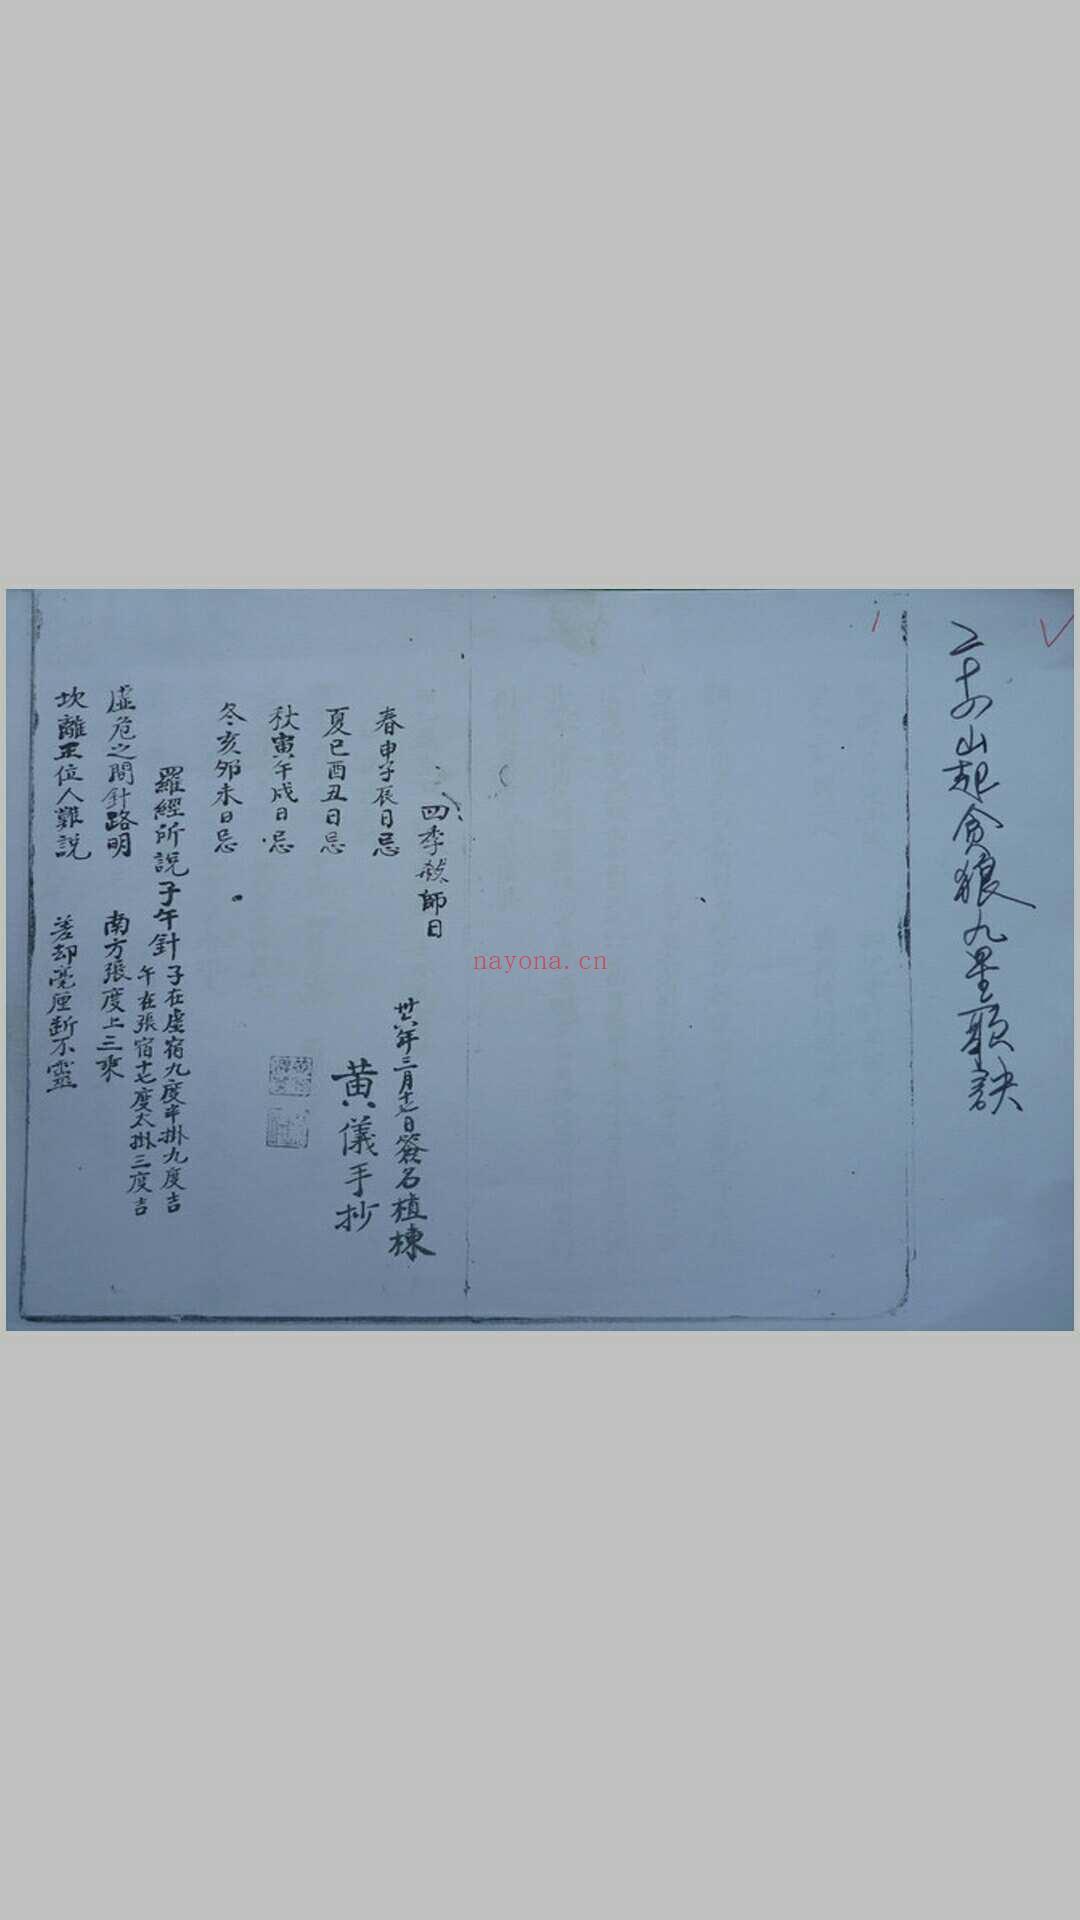 二十四山起貪狼九星歌訣
四季殺師日
春申子辰日忌
夏巳酉丑日忌
秋寅午戌日忌
冬亥卯未日忌
年三月十七日簽名植棟
黄儀手抄
羅經所說子午針
子在虛宿九度半掛九度吉
午在張宿十七度太掛三度吉
虛危之間針路明
南方張度上三乘
坎離正位人難說
差却毫厘断不靈
nayona.cn